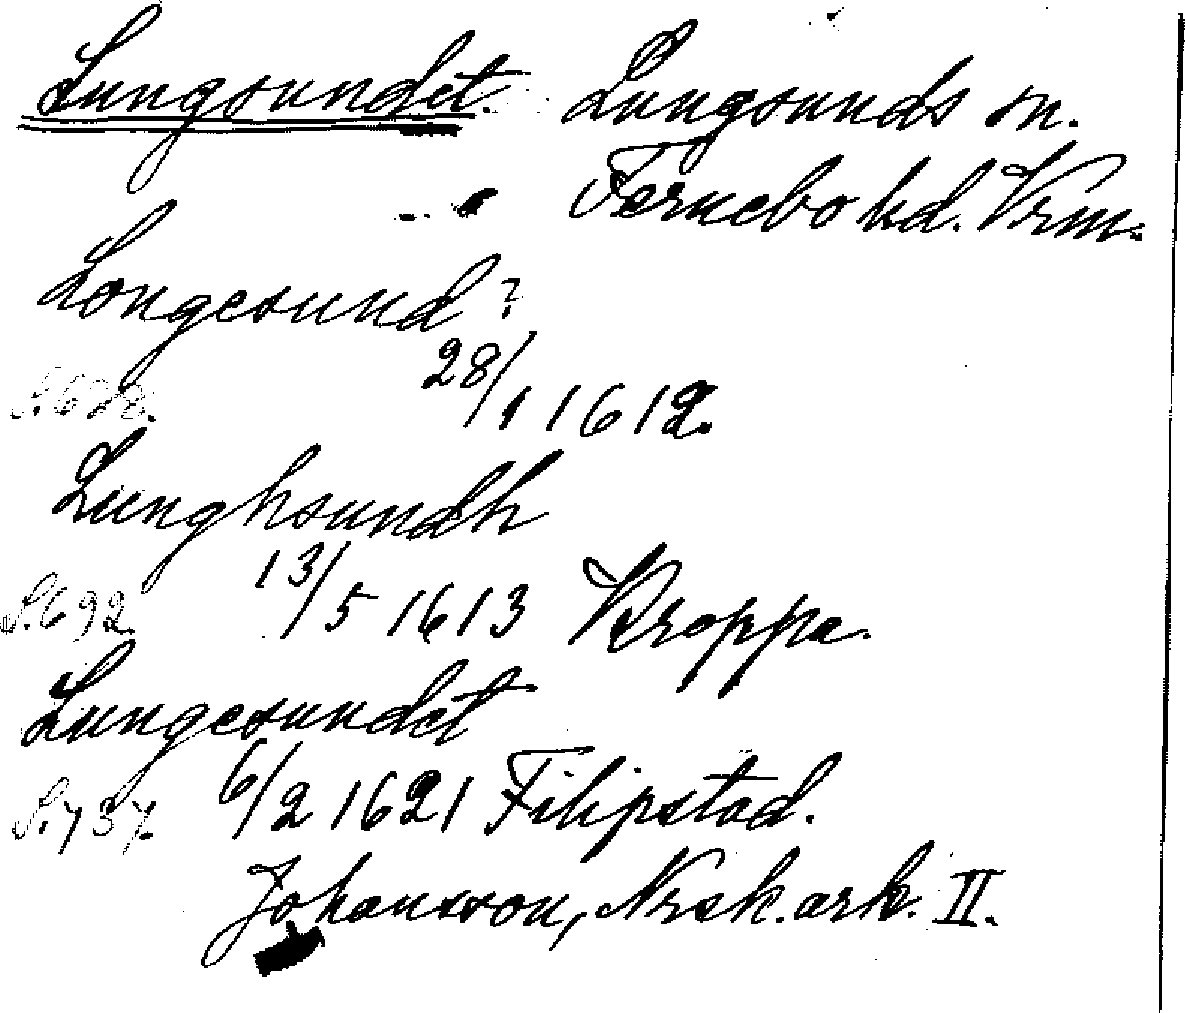 Lungsundet. Lungsunds sn.
Fernebo hd. Vrm.
Longesund?
S. 628. 28/1 1612.
Lunghsundh
S. 692. 13/5 1613 Kroppa.
Lungesundet
S. 737. 6/2 1621 Filipstad.
Johansson, Nrsk. ark. II.